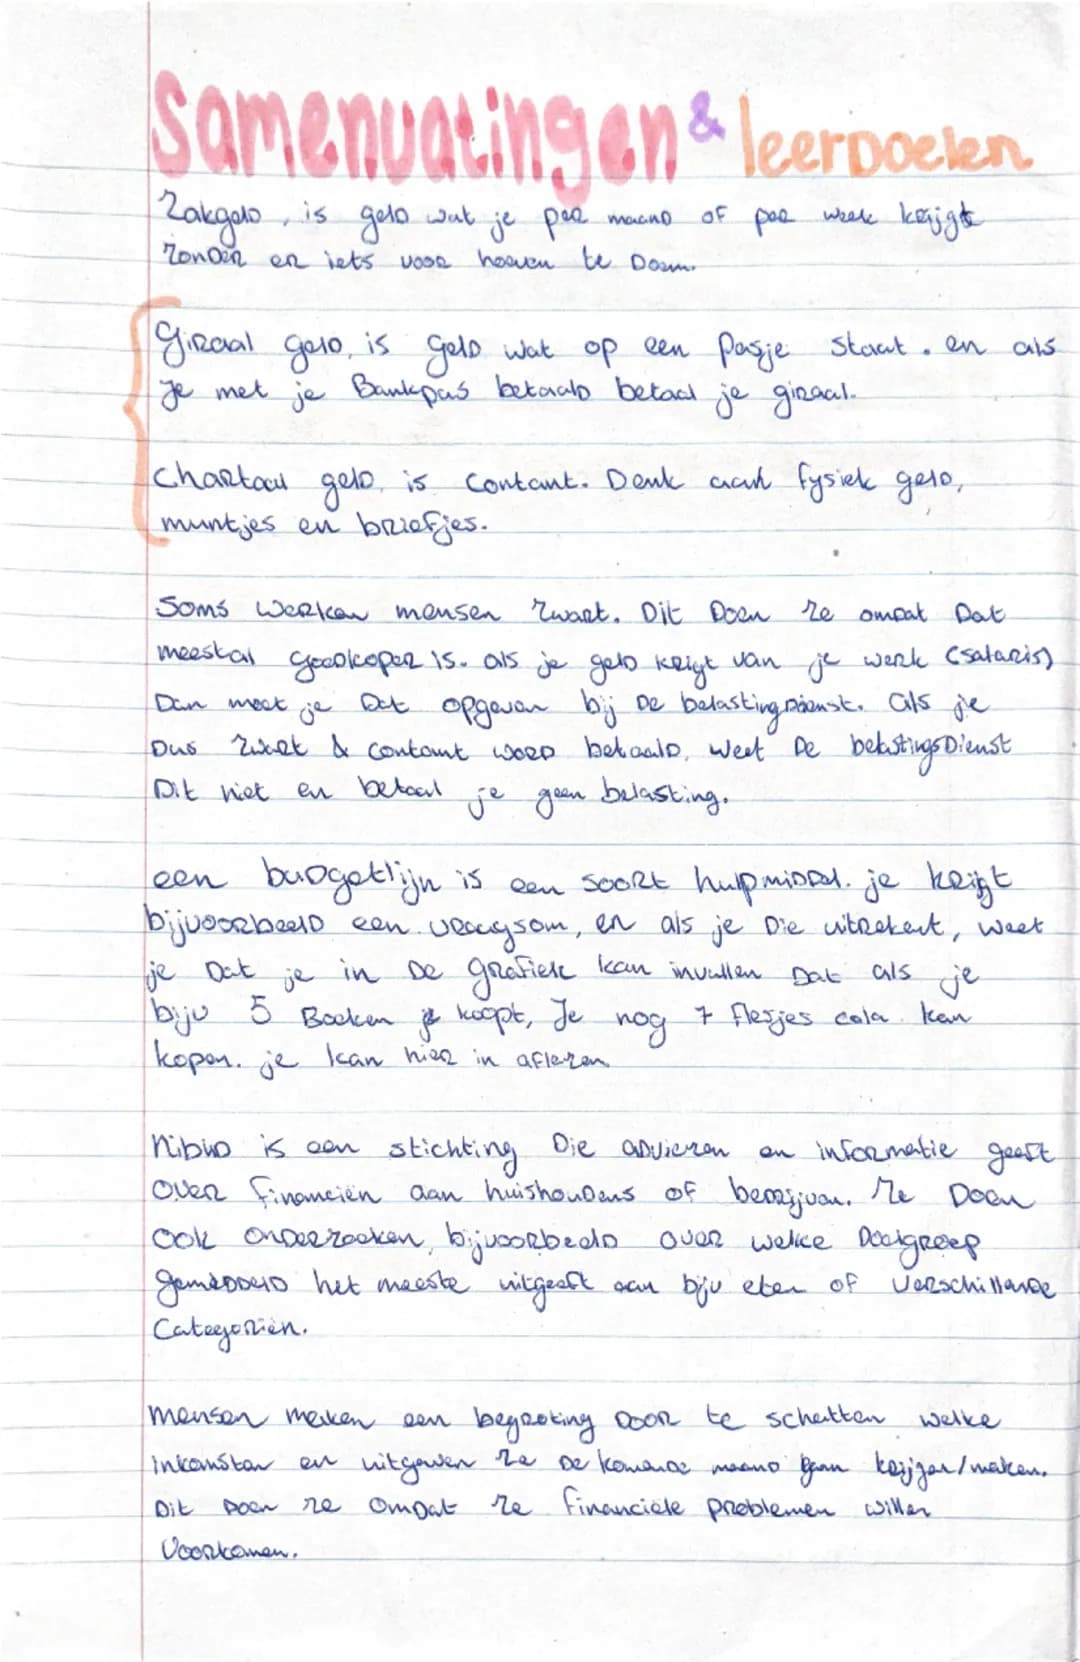 Samenvatingen & leerdoelen
Zakgeld, is geld wat je per maand of per week krijgt
zonder er iets voor hoeven te Doen.
Giraal geld, is geld wat op een pasje staat. en als
Je met je Bankpas betaald betaal je giraal.
Chartaal geld, is Contant. Denk aan fysiek geld,
muntjes en briefjes.
Soms werken mensen zwart. Dit Doen ze omdat Dat
meestal goedkoper is. als je geld krijgt van je werk (salaris)
Dan moet je Dat opgeven bij De belastingdienst. Als je
Dus zwart & contant word betaald, weet De belastingsDienst
Dit niet en betaal je geen belasting.
een budgetlijn is een soort hulpmiddel. je krijgt
bijvoorbeeld een vraagsom, en als je Die uitrekent, weet
je Dat je in De grafiek kan invullen Dat als je
bijv 5 Boeken koopt, Je nog 7 flesjes cola kan
kopen. je kan hier in aflezen
Nibud is een stichting Die adviezen en informatie geeft
over financiën aan huishoudens of bedrijven. Ze Doen
ook onderzoeken, bijvoorbeeld over welke Doelgroep
gemiddeld het meeste uitgeeft aan bijv eten of verschillende
Categoriën.
mensen maken een begroting Door te schatten welke
inkomsten en uitgaven ze De komende maand gaan krijgen/maken.
Dit Doen ze omdat ze financiële problemen willen
Voorkomen.